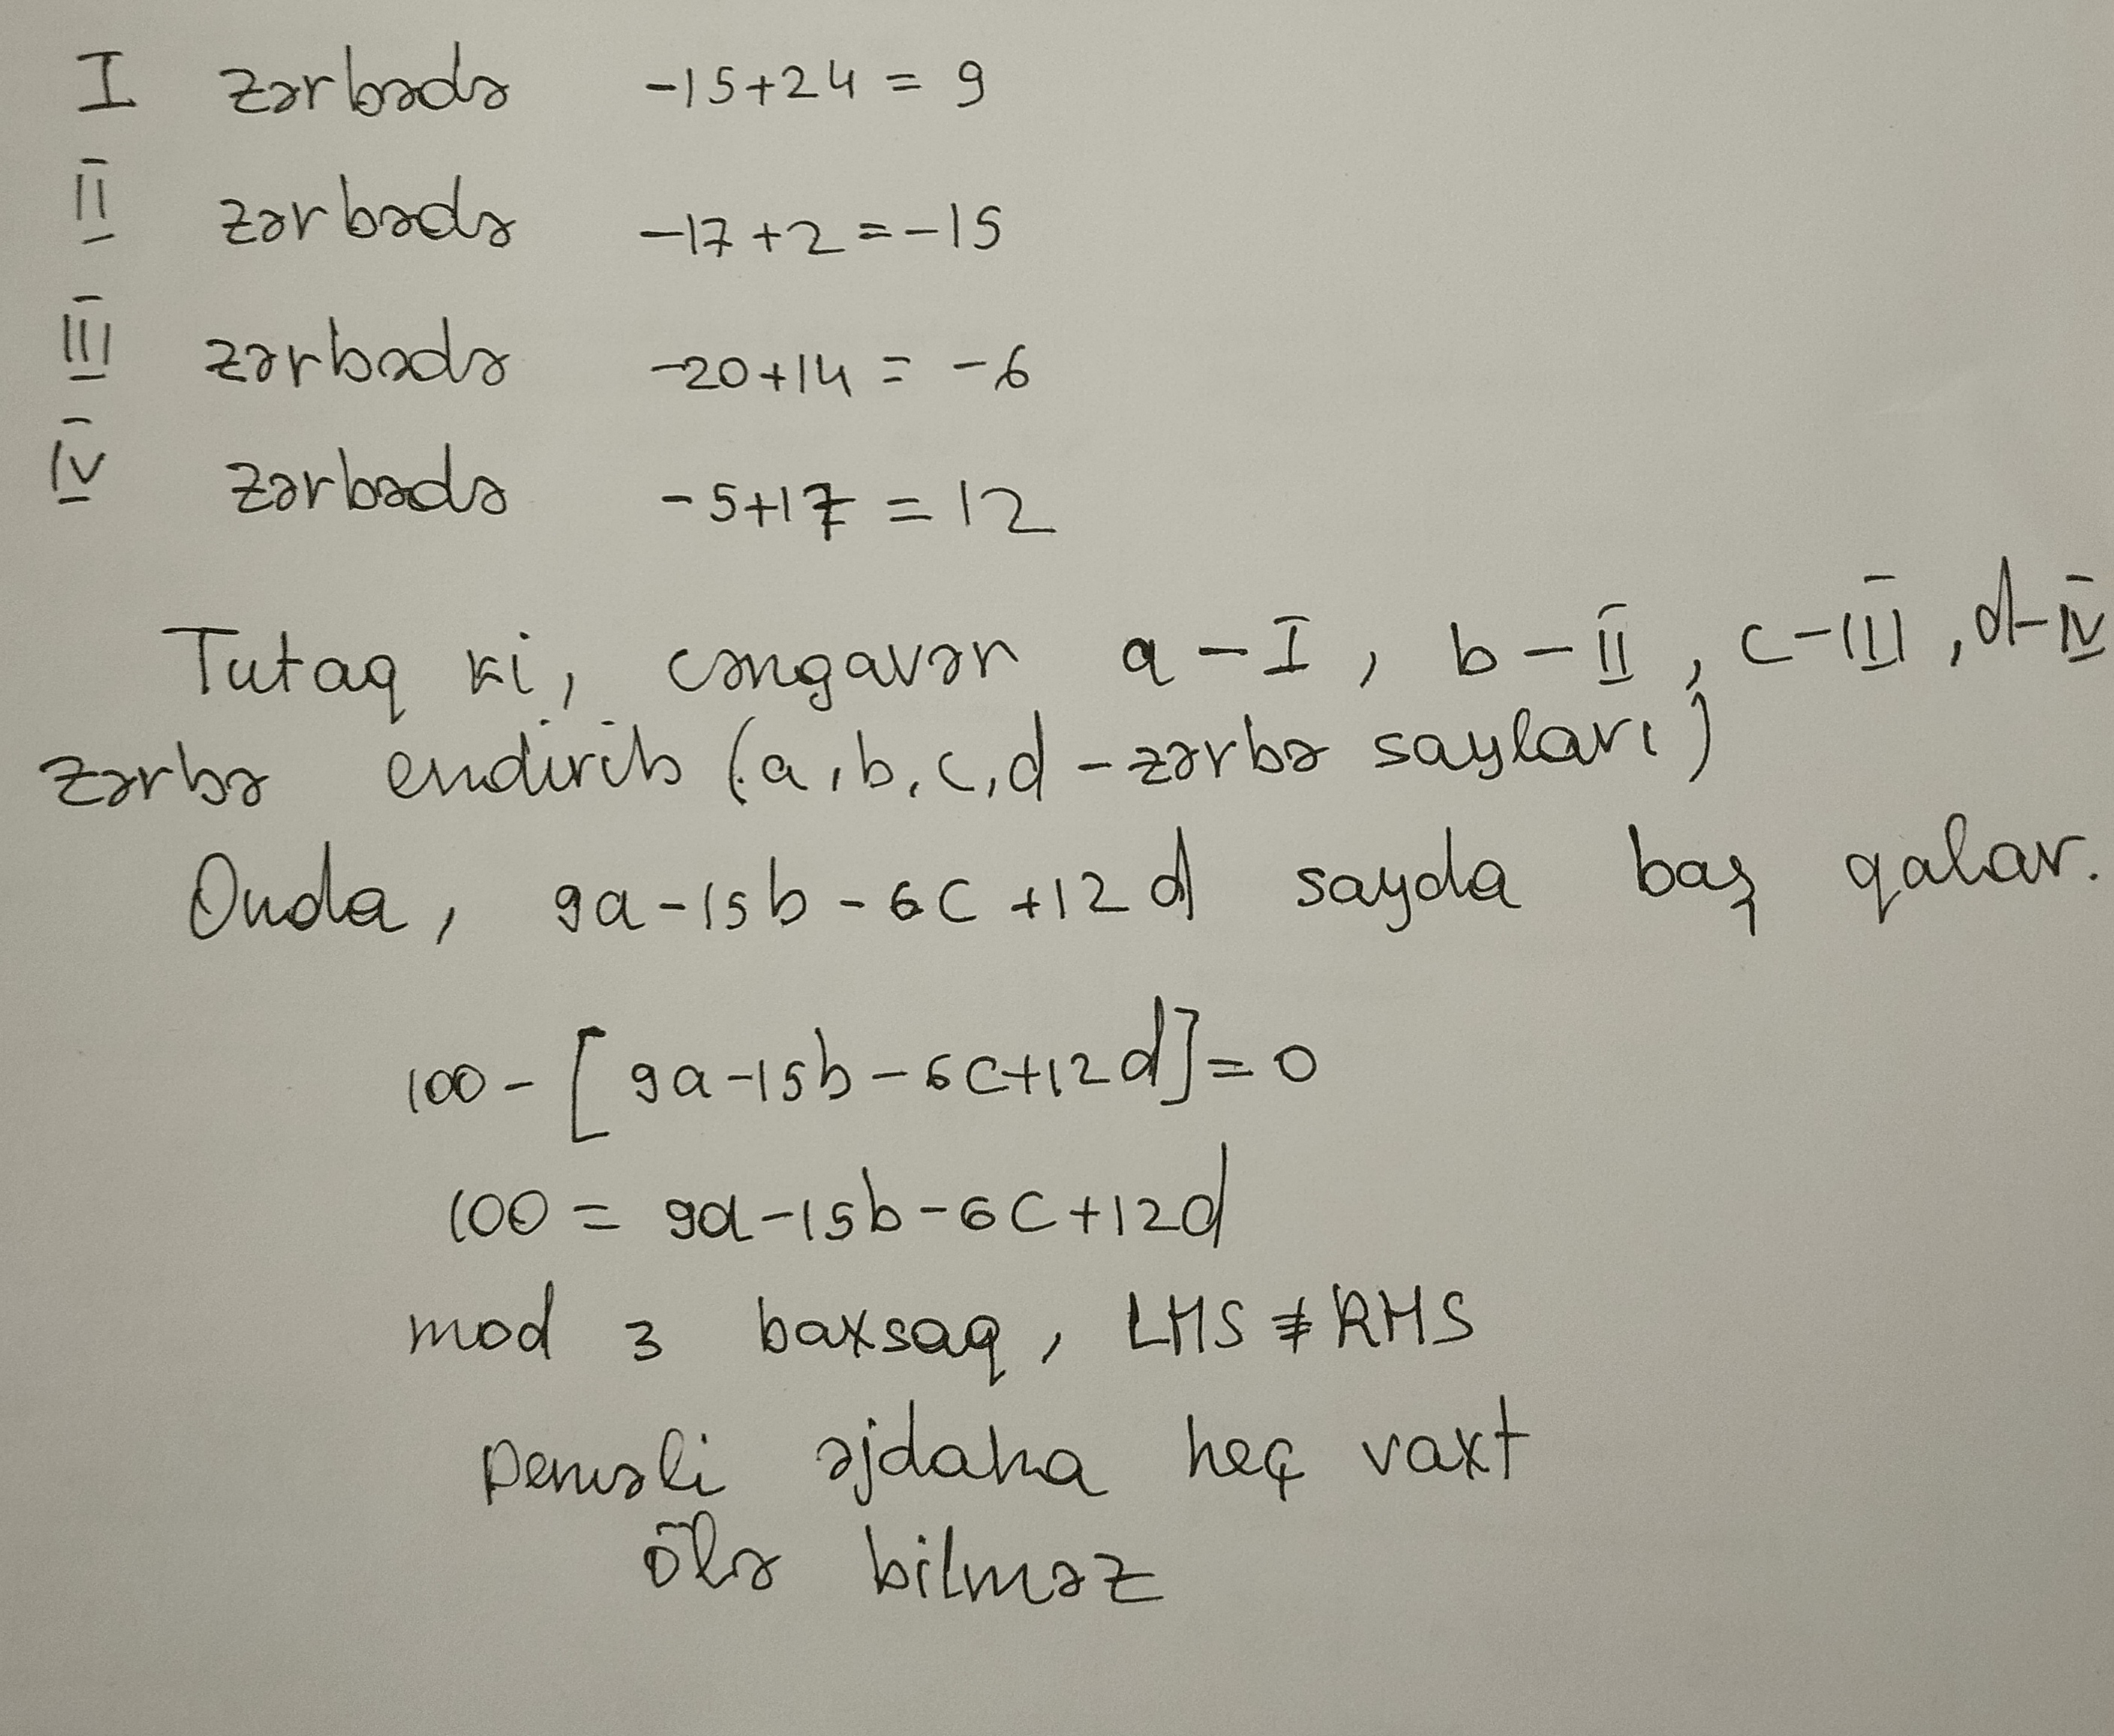 I zərbədə -15+24 = 9
II zərbədə -17+2=-15
III zərbədə -20+14 = -6
IV zərbədə -5+17 = 12
Tutaq ki, cəngavər a-I, b-II, c-III, d-IV
zərbə endirib (a,b,c,d - zərbə sayları)
Onda, 9a-15b-6c+12d sayda baş qalar.
100-[9a-15b-6c+12d]=0
100 = 9a-15b-6c+12d
mod 3 baxsaq, LHS ≠ RHS
Deməli əjdaha heç vaxt
ölə bilməz